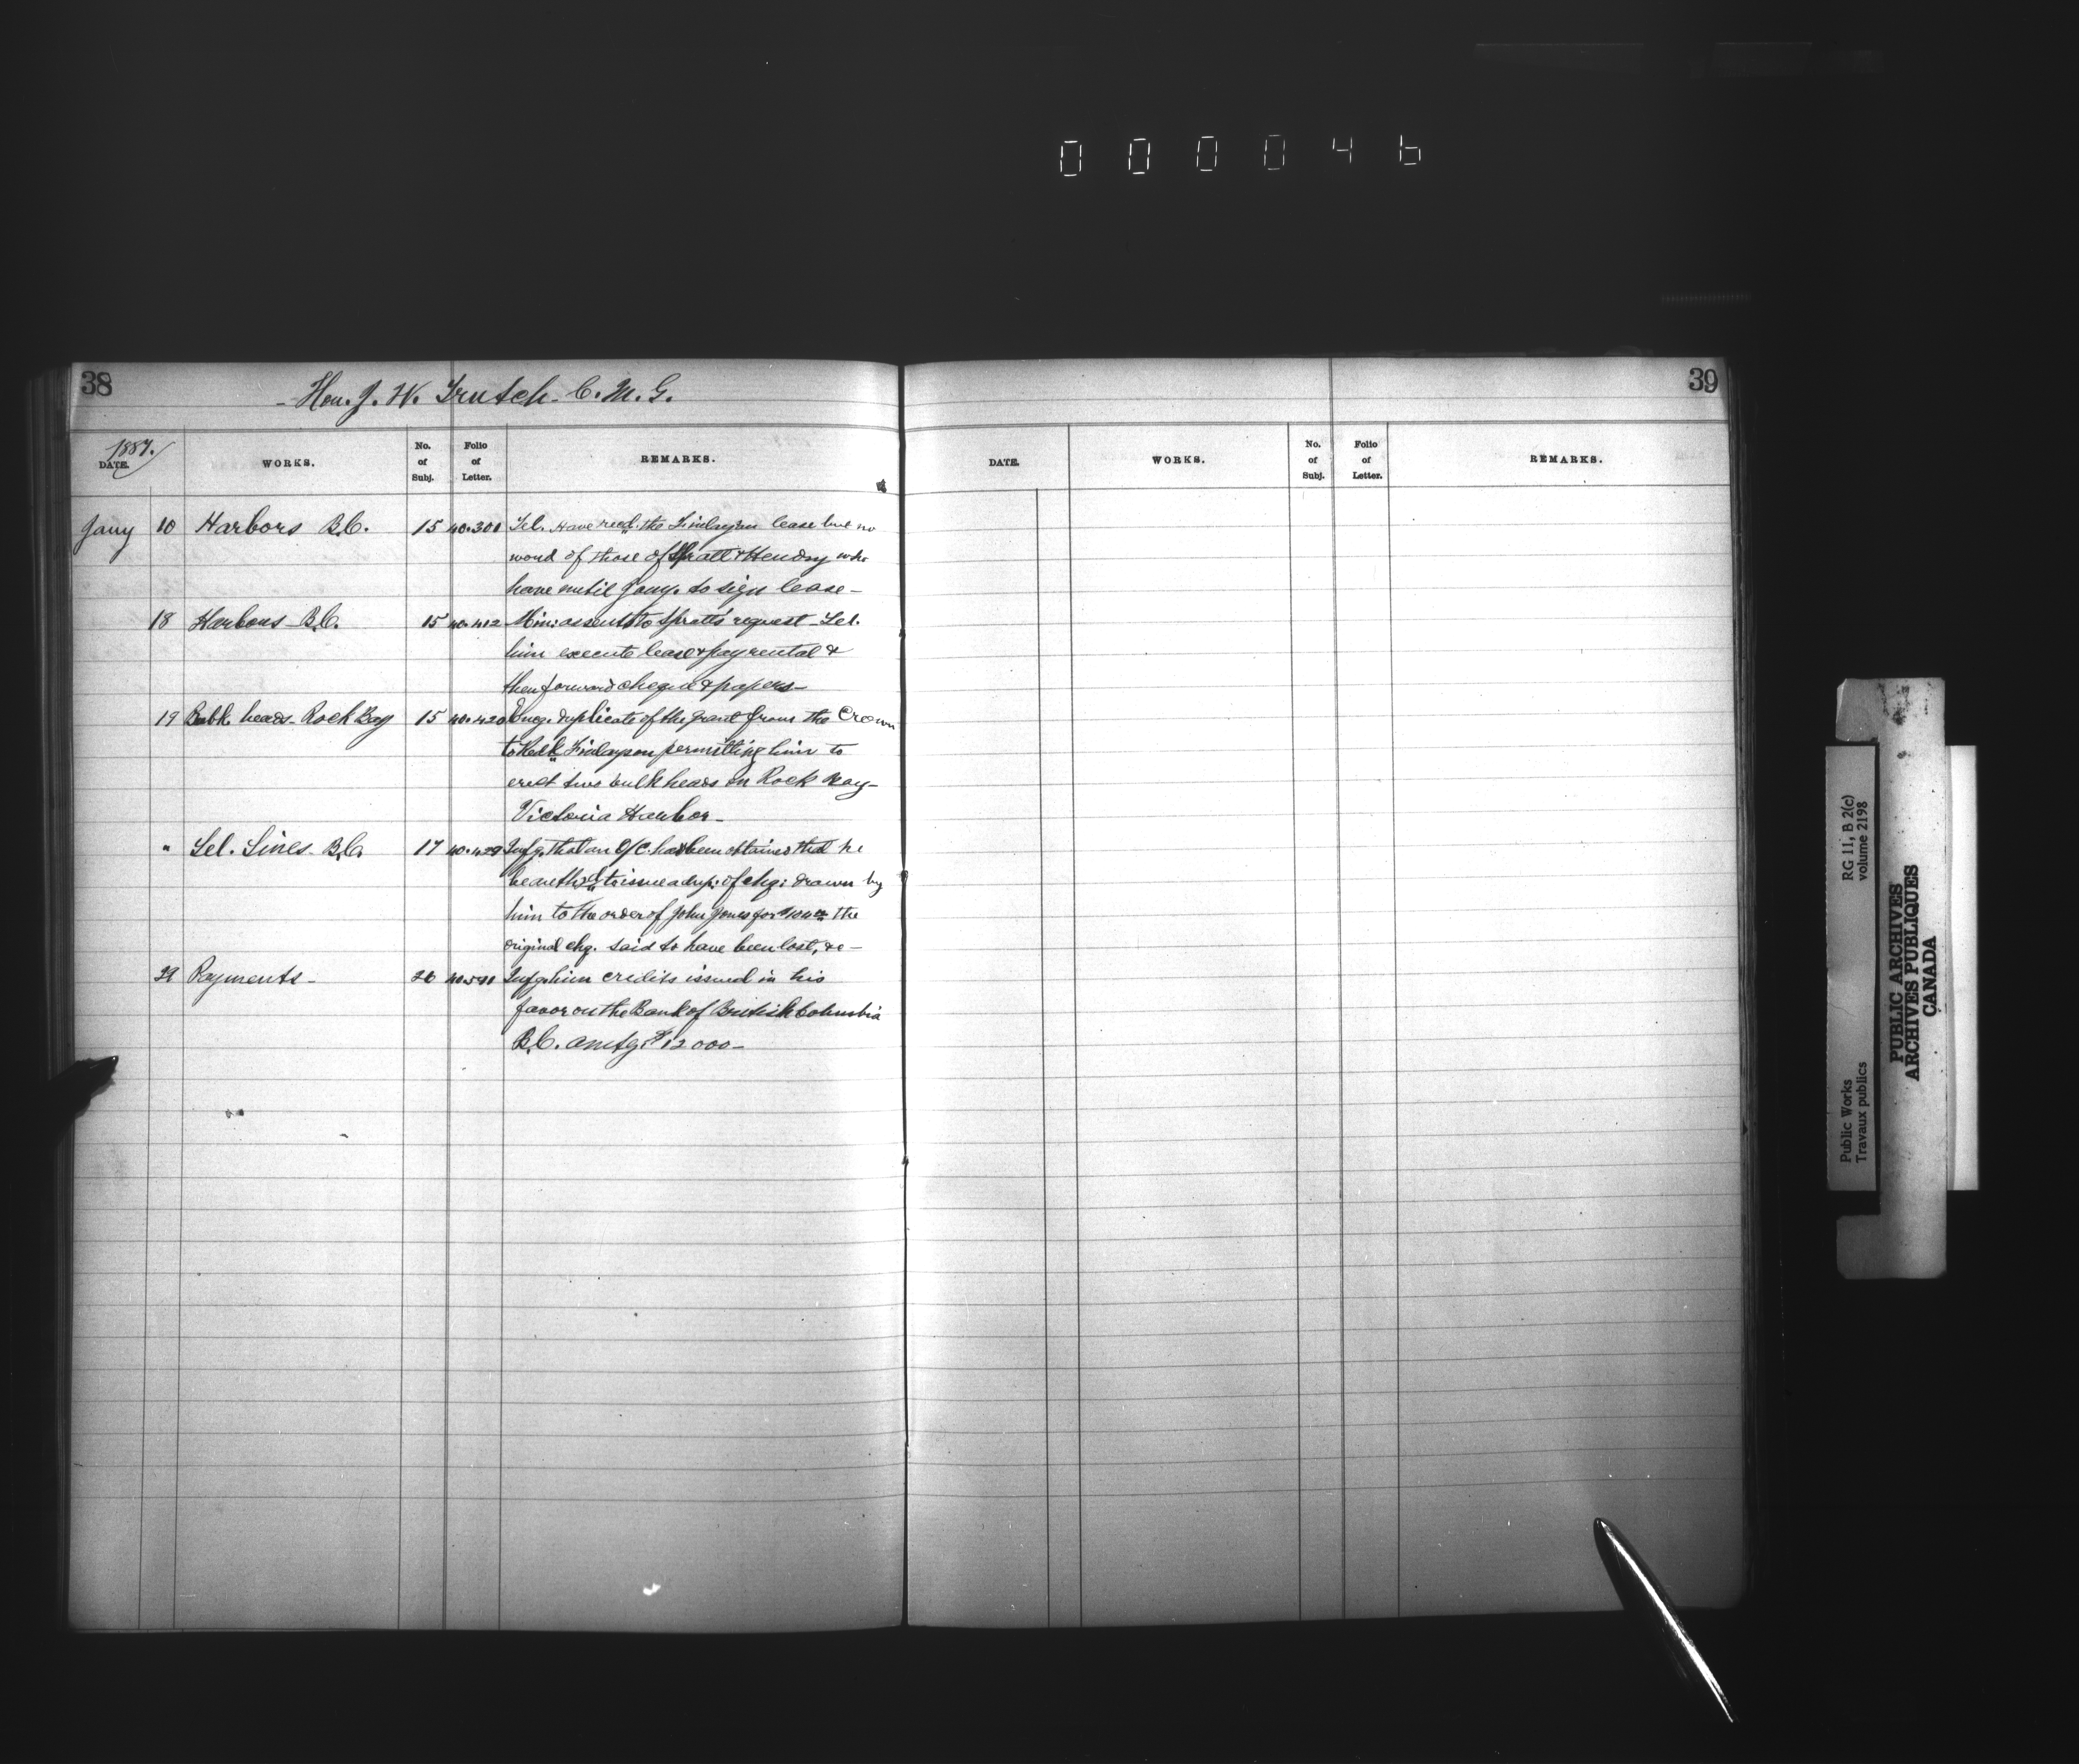 000046
38
Hon. J. W. Trutch. C. M. G.
1887.
DATE.
WORKS.
No. of Subj.
Folio of Letter.
REMARKS.
Jany 10 Harbors B.C. 15 40.301 Tel. Have recd. the Finlayson lease but no
word of those of Spratt & Hendry who
have until Jany. to sign lease-
18 Harbours B.C. 15 40.412 Min: assents to Spratt's request - Let
him execute lease & pay rental &
then forward cheque & papers-
19 Bulk heads- Rock Bay 15 40.420 Encg. duplicate of the grant from the Crown
to Rodk. Finlayson permitting him to
erect two bulkheads in Rock Bay-
Victoria Harbor-
" Tel. Lines- B.C. 17 40.429 Infg. that an O/C. has been obtained that he
be authd. to issue a dup: of chq: drawn by
him to the order of John Jones for the
original chq. said to have been lost, &c-
29 Payments- 26 Infg. him credits issued in his
favor on the Bank of British Columbia
B.C. amtg: $12000-
39
DATE.
WORKS.
No. of Subj.
Folio of Letter.
REMARKS.
Public Works
Travaux publics
RG 11, B 2(c)
volume 2198
PUBLIC ARCHIVES
ARCHIVES PUBLIQUES
CANADA